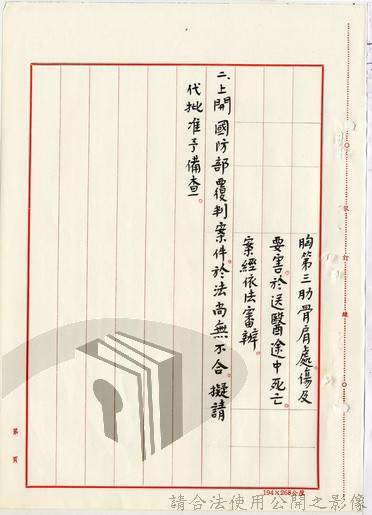 胸第三肋骨肩處。傷及
要害於送醫途中死亡。
案經依法審辦。
二、上開國防部覆判案件。於法尚無不合。擬請
代批准予備查。
裝訂線
第 頁
194×268公厘
請合法使用公開之影像